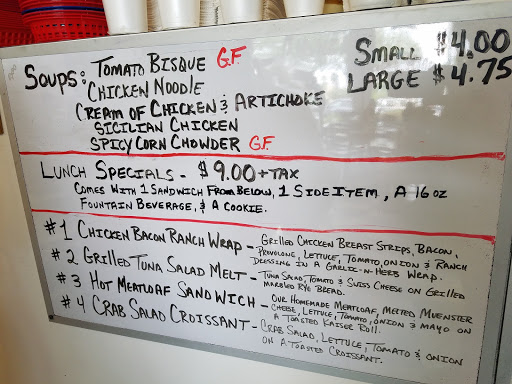 Soups: Tomato Bisque G.F
Chicken Noodle
Cream of Chicken & Artichoke
Sicilian Chicken
Spicy Corn Chowder G.F
Small $4.00
Large $4.75
Lunch Specials - $9.00 + tax
Comes with 1 Sandwich From Below, 1 Side Item, A 16 oz
Fountain Beverage, & A Cookie.
#1 Chicken Bacon Ranch Wrap - Grilled Chicken Breast Strips, Bacon,
Provolone, Lettuce, Tomato, Onion & Ranch
Dressing in a Garlic-N-Herb Wrap.
#2 Grilled Tuna Salad Melt - Tuna Salad, Tomato & Swiss Cheese on Grilled
Marbled Rye Bread.
#3 Hot Meatloaf Sandwich - Our Homemade Meatloaf, Melted Muenster
Cheese, Lettuce, Tomato, Onion & Mayo on
A Toasted Kaiser Roll.
#4 Crab Salad Croissant - Crab Salad, Lettuce, Tomato & Onion
on a Toasted Croissant.